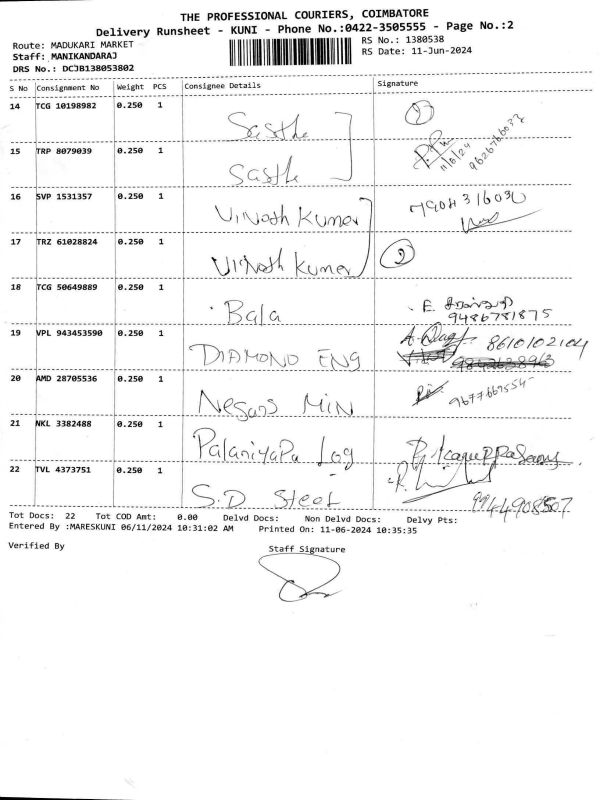 THE PROFESSIONAL COURIERS, COIMBATORE
Delivery Runsheet - KUNI - Phone No.:0422-3505555 - Page No.:2
Route: MADUKARI MARKET
RS No.: 1380538
Staff: MANIKANDARAJ
RS Date: 11-Jun-2024
DRS No.: DCJB138053802
S No Consignment No Weight PCS Consignee Details Signature
14 TCG 10198982 0.250 1 Sasthe 2
15 TRP 8079039 0.250 1 Sasthe 11/6/24 9626766033
16 SVP 1531357 0.250 1 Vinoth Kumar 7904316030
17 TRZ 61028824 0.250 1 Vinoth Kumar 2
18 TCG 50649889 0.250 1 Bala E. 9486781875
19 VPL 943453590 0.250 1 DIAMOND ENG 8610102104
20 AMD 28705536 0.250 1 Negaas MIN 9677669554
21 NKL 3382488 0.250 1 Palaniyapa Log
22 TVL 4373751 0.250 1 S.D Steel
Tot Docs: 22 Tot COD Amt: 0.00 Delvd Docs: Non Delvd Docs: Delvy Pts:
Entered By :MARESKUNI 06/11/2024 10:31:02 AM Printed On: 11-06-2024 10:35:35
Verified By
Staff Signature